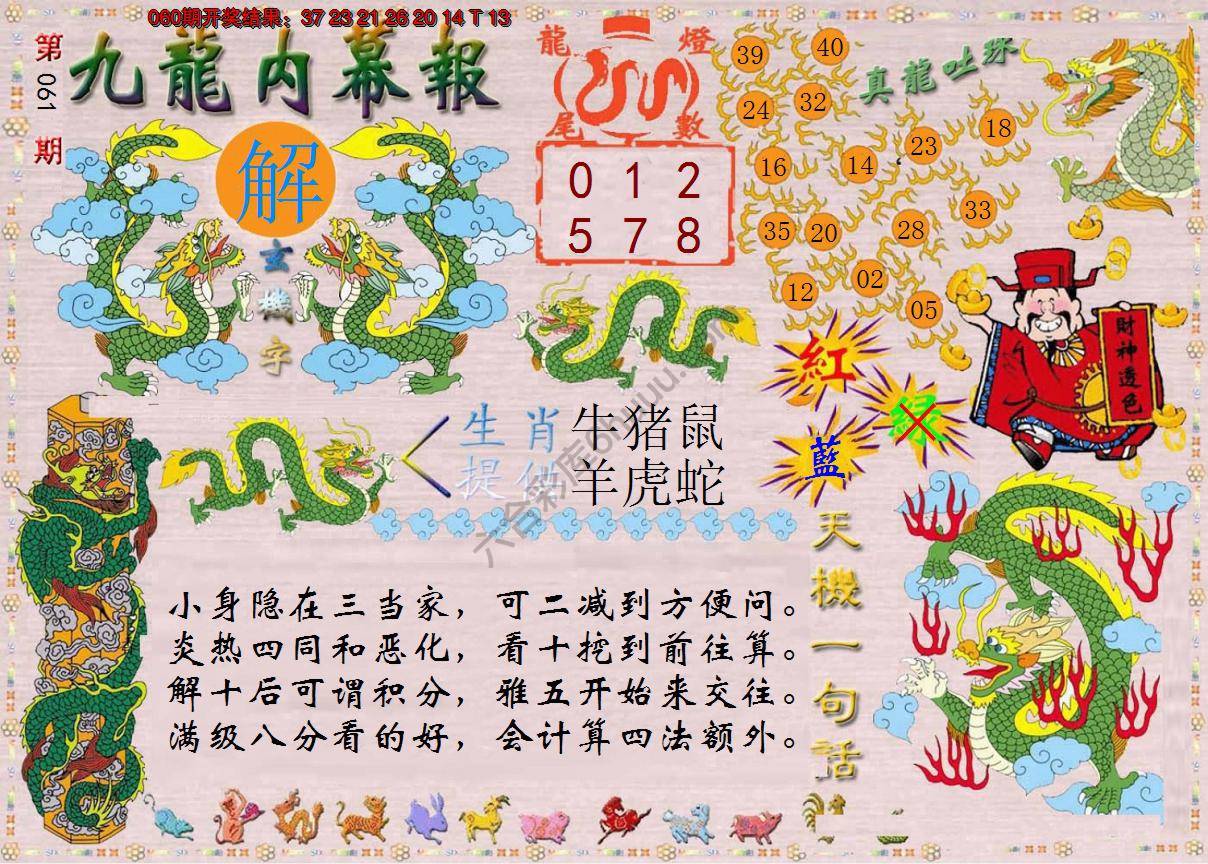 060期开奖结果：37 23 21 26 20 14 T 13
第061期
九龍内幕報
解
玄機字
龍燈
尾數
0 1 2
5 7 8
真龍吐珠
39 40
24 32
16 14 23 18
35 20 28 33
12 02 05
財神透色
紅
綠
藍
生肖 牛猪鼠
提供 羊虎蛇
六合彩库
天機一句話
小身隐在三当家，可二减到方便问。
炎热四同和恶化，看十挖到前往算。
解十后可谓积分，雅五开始来交往。
满级八分看的好，会计算四法额外。